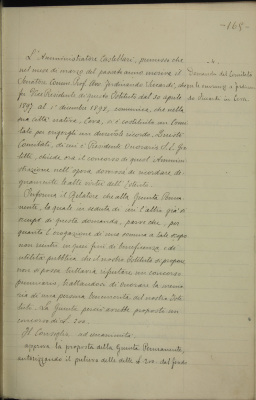 - 165 -
L'Amministratore Castellini, premesso che
nel mese di marzo del passato anno moriva il
Senatore Comm. Prof. Avv. Ferdinando
fu Vice Presidente di questo Istituto dal 30 aprile
1897 al 1° dicembre 1898, comunica che nella
sua città nativa, , si è costituito un Comi-
tato per erigergli un durevole ricordo. Questo
Comitato, di cui è Presidente Onorario S. E.
, chiede ora il concorso di quest'Ammini-
strazione nell'opera doverosa di ricordare de-
gnamente le alte virtù dell'Estinto.
Conferma il Relatore che alla Giunta Perma-
nente, la quale in seduta di un l'altro già si
occupò di questa domanda, parve che, per
quanto l'erogazione di una somma a tale scopo
non rientri in quei fini di beneficenza e di
utilità pubblica che il nostro Istituto si propone,
non si possa tuttavia rifiutare un concorso
pecuniario, trattandosi di onorare la memo-
ria di una persona benemerita del nostro Isti-
tuto. La Giunta perciò avrebbe proposto un
concorso di L. 200.
Il Consiglio, ad unanimità,
approva la proposta della Giunta Permanente,
autorizzando il prelievo delle dette L. 200 dal fondo